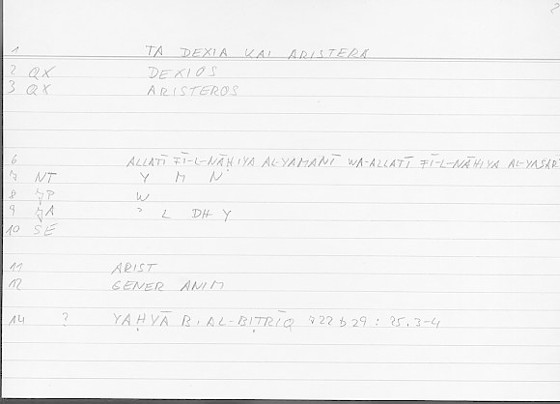 1 TA DEXIA KAI ARISTERA
2 QX DEXIOS
3 QX ARISTEROS
6 ALLATĪ FĪ-L-NĀḤIYA AL-YAMANĪ WA-ALLATĪ FĪ-L-NĀḤIYA AL-YASAR
7 NT Y M N
8 P W
9 A ʾ L DH Y
10 SE
11 ARIST
12 GENER ANIM
14 ? YAḤYĀ B. AL-BIṬRĪQ 722 b 29 : 25.3-4